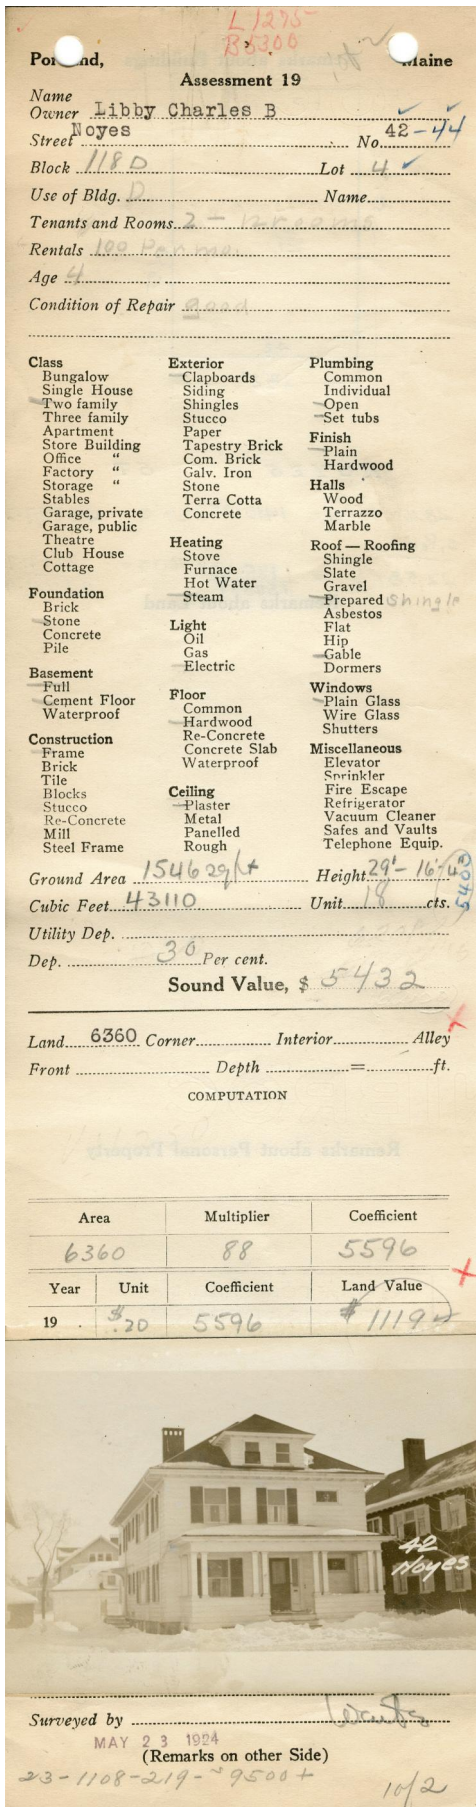 L 1275
B 5300
Portland, Maine
Assessment 19
Name
Owner Libby Charles B
Street Noyes No. 42-44
Block 118 D Lot 4
Use of Bldg. D Name
Tenants and Rooms 2 - rooms
Rentals 100 Per mo.
Age 4
Condition of Repair good
Class
Bungalow
Single House
Two family
Three family
Apartment
Store Building
Office "
Factory "
Storage "
Stables
Garage, private
Garage, public
Theatre
Club House
Cottage
Foundation
Brick
Stone
Concrete
Pile
Basement
Full
Cement Floor
Waterproof
Construction
Frame
Brick
Tile
Blocks
Stucco
Re-Concrete
Mill
Steel Frame
Exterior
Clapboards
Siding
Shingles
Stucco
Paper
Tapestry Brick
Com. Brick
Galv. Iron
Stone
Terra Cotta
Concrete
Heating
Stove
Furnace
Hot Water
Steam
Light
Oil
Gas
Electric
Floor
Common
Hardwood
Re-Concrete
Concrete Slab
Waterproof
Ceiling
Plaster
Metal
Panelled
Rough
Plumbing
Common
Individual
Open
Set tubs
Finish
Plain
Hardwood
Halls
Wood
Terrazzo
Marble
Roof — Roofing
Shingle
Slate
Gravel
Prepared Shingle
Asbestos
Flat
Hip
Gable
Dormers
Windows
Plain Glass
Wire Glass
Shutters
Miscellaneous
Elevator
Sprinkler
Fire Escape
Refrigerator
Vacuum Cleaner
Safes and Vaults
Telephone Equip.
Ground Area 1546 sq ft Height 29'-16'
Cubic Feet 43110 Unit 18 cts.
Utility Dep.
Dep. 30 Per cent.
Sound Value, $ 5432
Land 6360 Corner Interior Alley
Front Depth = ft.
COMPUTATION
Remarks about Personal Property
Area Multiplier Coefficient
6360 88 5596
Year Unit Coefficient Land Value
19 $.20 5596 $1119
42
Noyes
Surveyed by
MAY 23 1924
(Remarks on other Side)
23-1108-219- 9500+
10/2